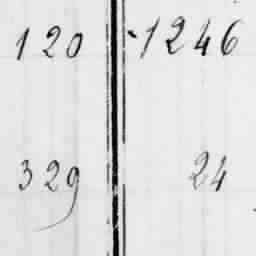 120 1246
329 24